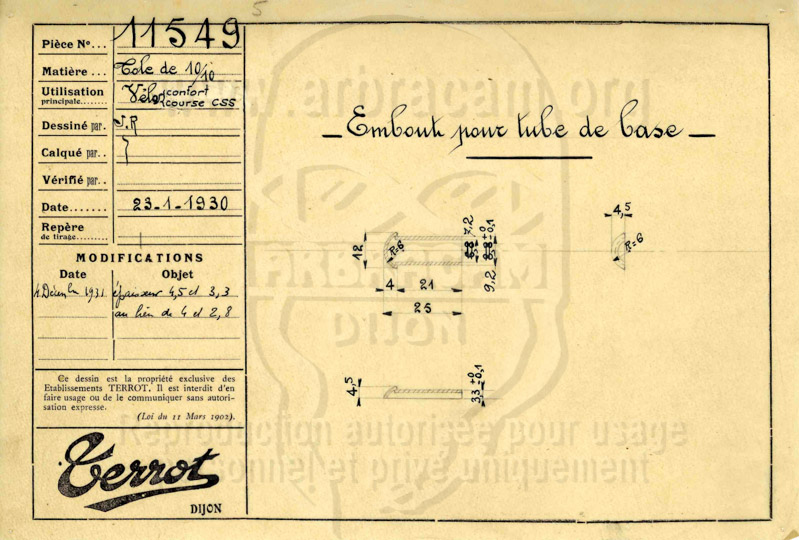 5
Pièce Nº... 11549
Matière ... Tole de 10/10
Utilisation
principale........ Vélo confort
course CSS
Dessiné par. J.R
Calqué par..
Vérifié par..
Date....... 23-1-1930
Repère
de tirage.........
MODIFICATIONS
Date Objet
4 Décembre 1931 épaisseur 4,5 et 3,3
au lieu de 4 et 2,8
Ce dessin est la propriété exclusive des
Etablissements TERROT. Il est interdit d'en
faire usage ou de le communiquer sans autori-
sation expresse.
(Loi du 11 Mars 1902).
Terrot
DIJON
www.arbracam.org
_ Embout pour tube de base _
4,5
R=6
12
R=6
7,2
8,8 ±0 0,1
9,2
4 21
25
ARBRACAM
DIJON
4,5
3,3 ±0 0,1
Reproduction autorisée pour usage
personnel et privé uniquement